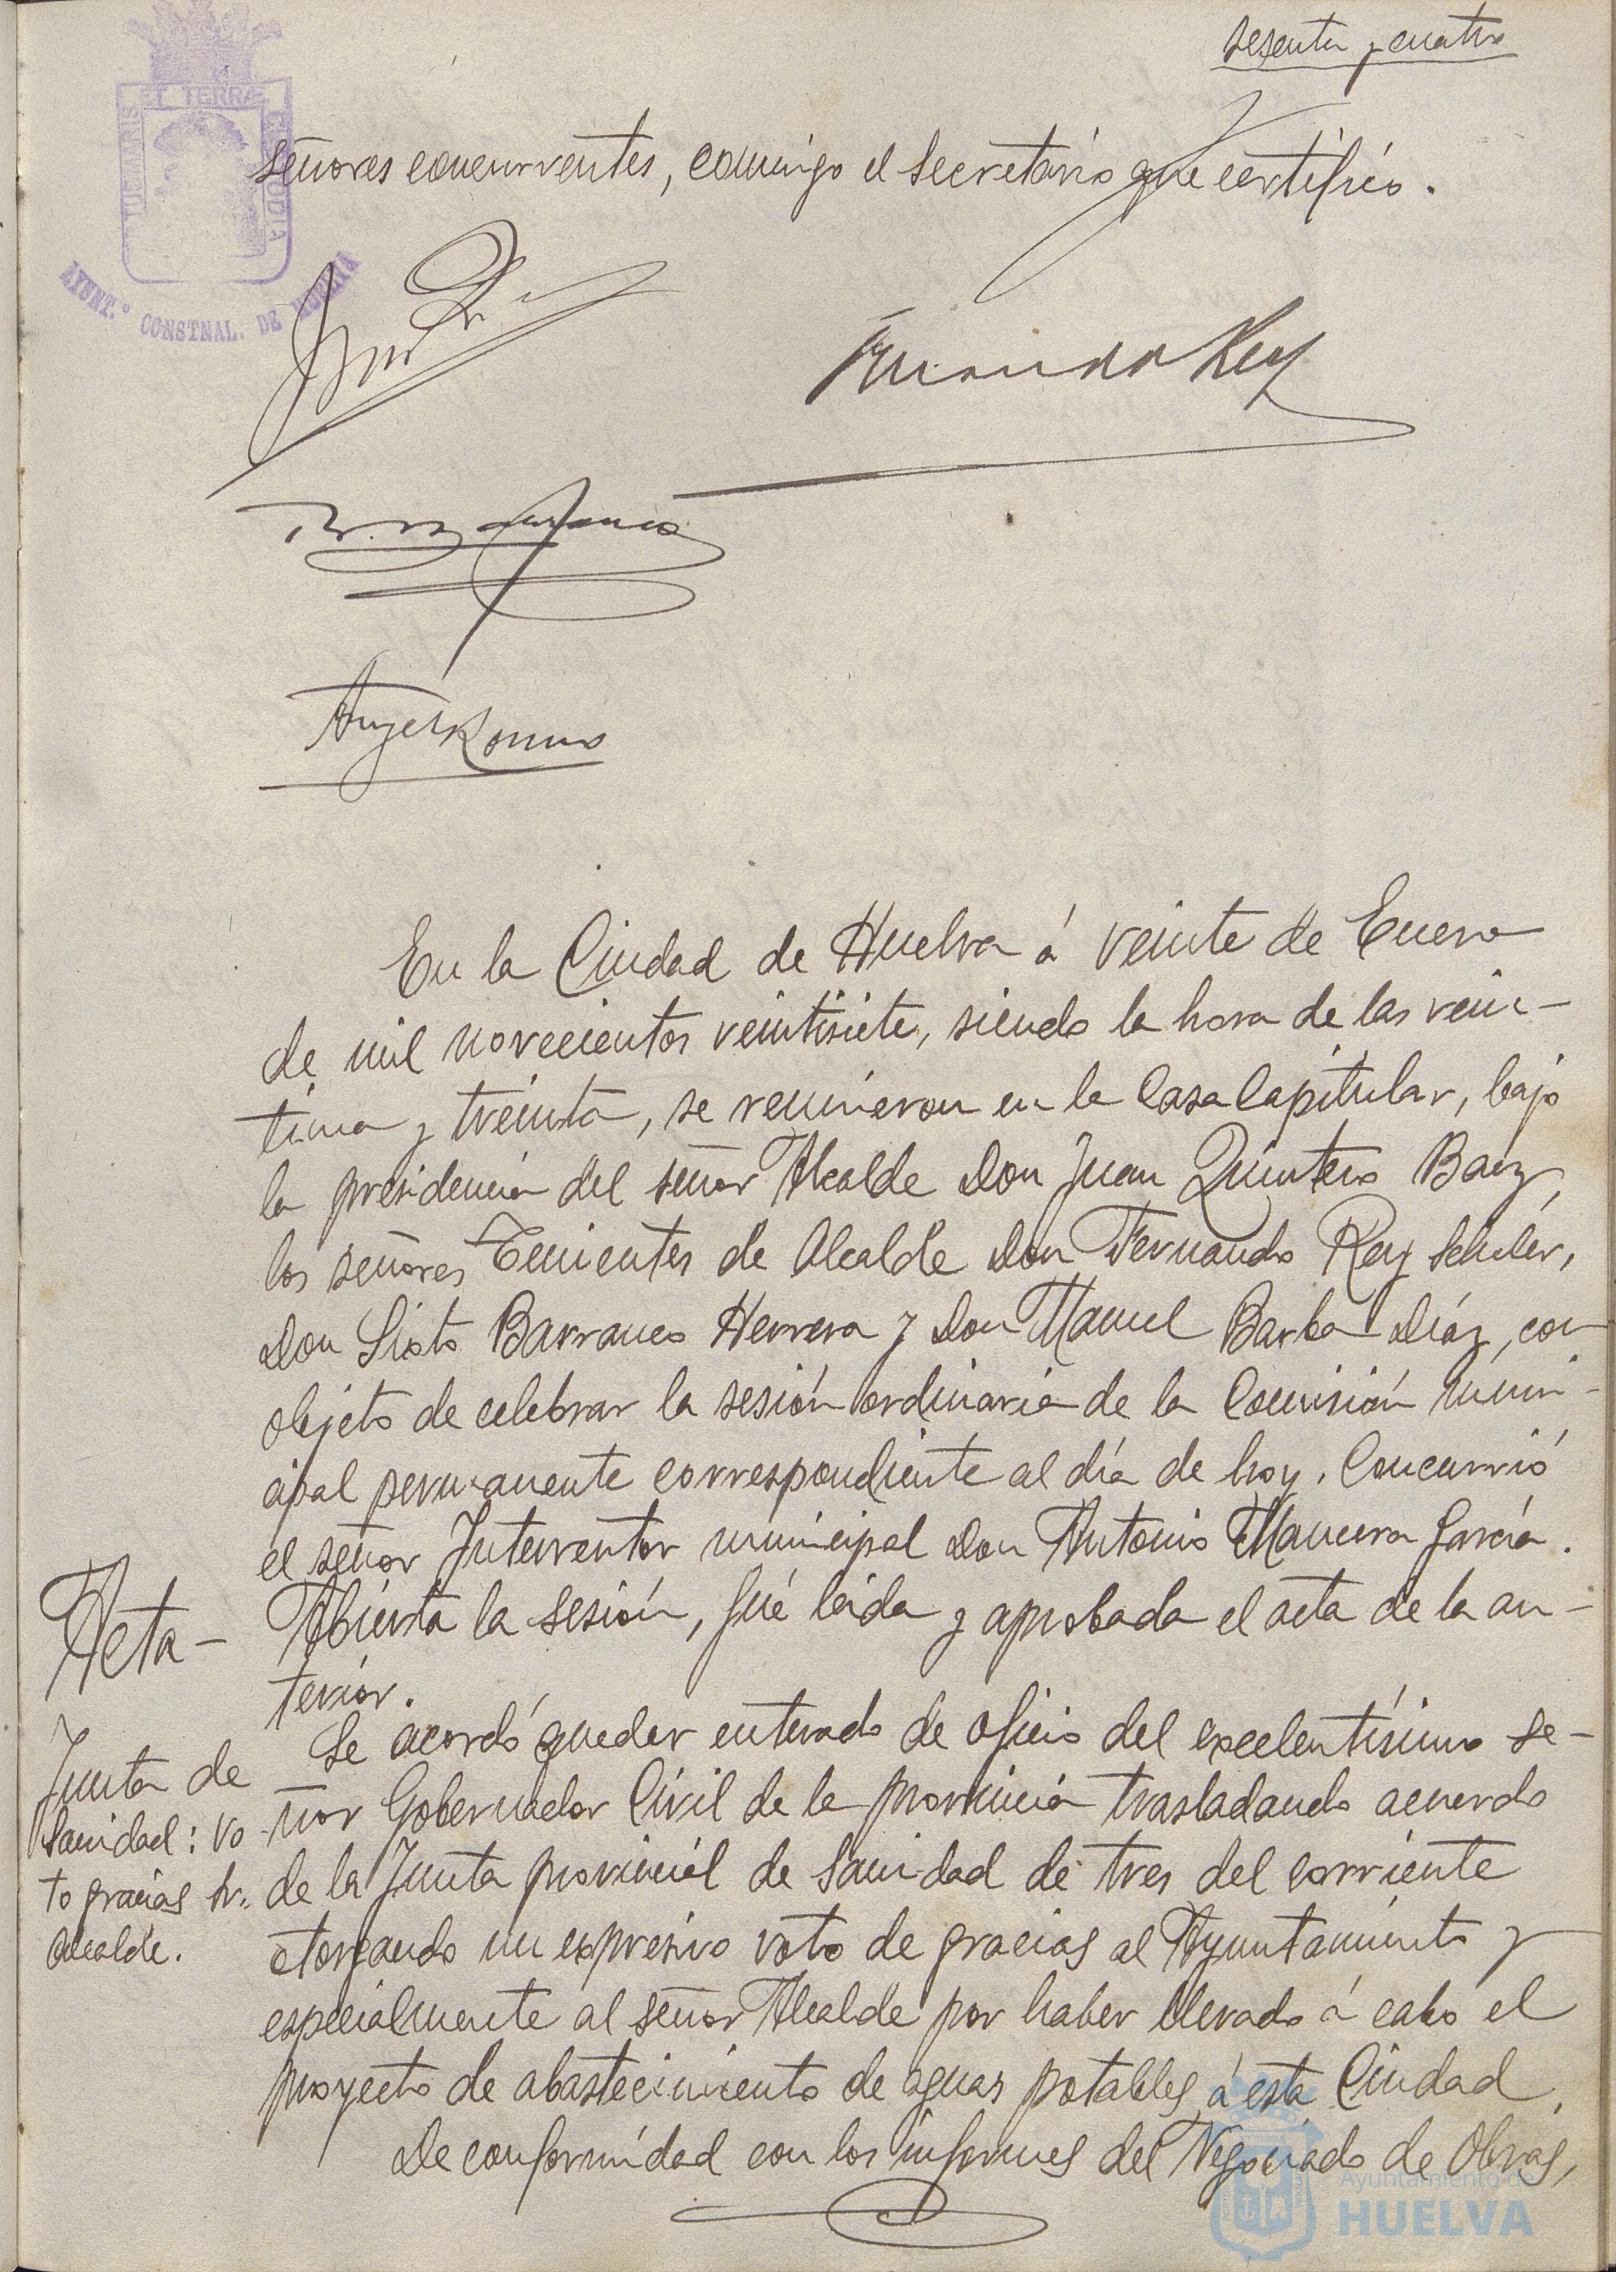 sesenta y cuatro
PORTUS MARIS ET TERRÆ CUSTODIA
AYUNT.º CONSTNAL. DE HUELVA
señores concurrentes, conmigo el secretario que certifico.
Fernando Rey
Angel Romero
En la Ciudad de Huelva á veinte de Enero
de mil novecientos veintisiete, siendo la hora de las vein-
tiuna y treinta, se reunieron en la Casa Capitular, bajo
la presidencia del señor Alcalde Don Juan Quintero Baez,
los señores Tenientes de Alcalde Don Fernando Rey Schuler,
Don Sixto Barranco Herrera y Don Manuel Barba Díaz, con
objeto de celebrar la sesión ordinaria de la Comisión muni-
cipal permanente correspondiente al día de hoy. Concurrió
el señor Interventor municipal Don Antonio Mancera García.
Acta-
Abierta la sesión, fué leida y aprobada el acta de la an-
terior.
Junta de
Sanidad: vo
to gracias Sr.
Alcalde.
Se acordó quedar enterado de oficio del excelentísimo se-
ñor Gobernador Civil de la provincia trasladando acuerdo
de la Junta provincial de Sanidad de tres del corriente
otorgando un expresivo voto de gracias al Ayuntamiento y
especialmente al señor Alcalde por haber llevado á cabo el
proyecto de abastecimiento de aguas potables á esta Ciudad.
De conformidad con los informes del Negociado de Obras,
Ayuntamiento de
HUELVA